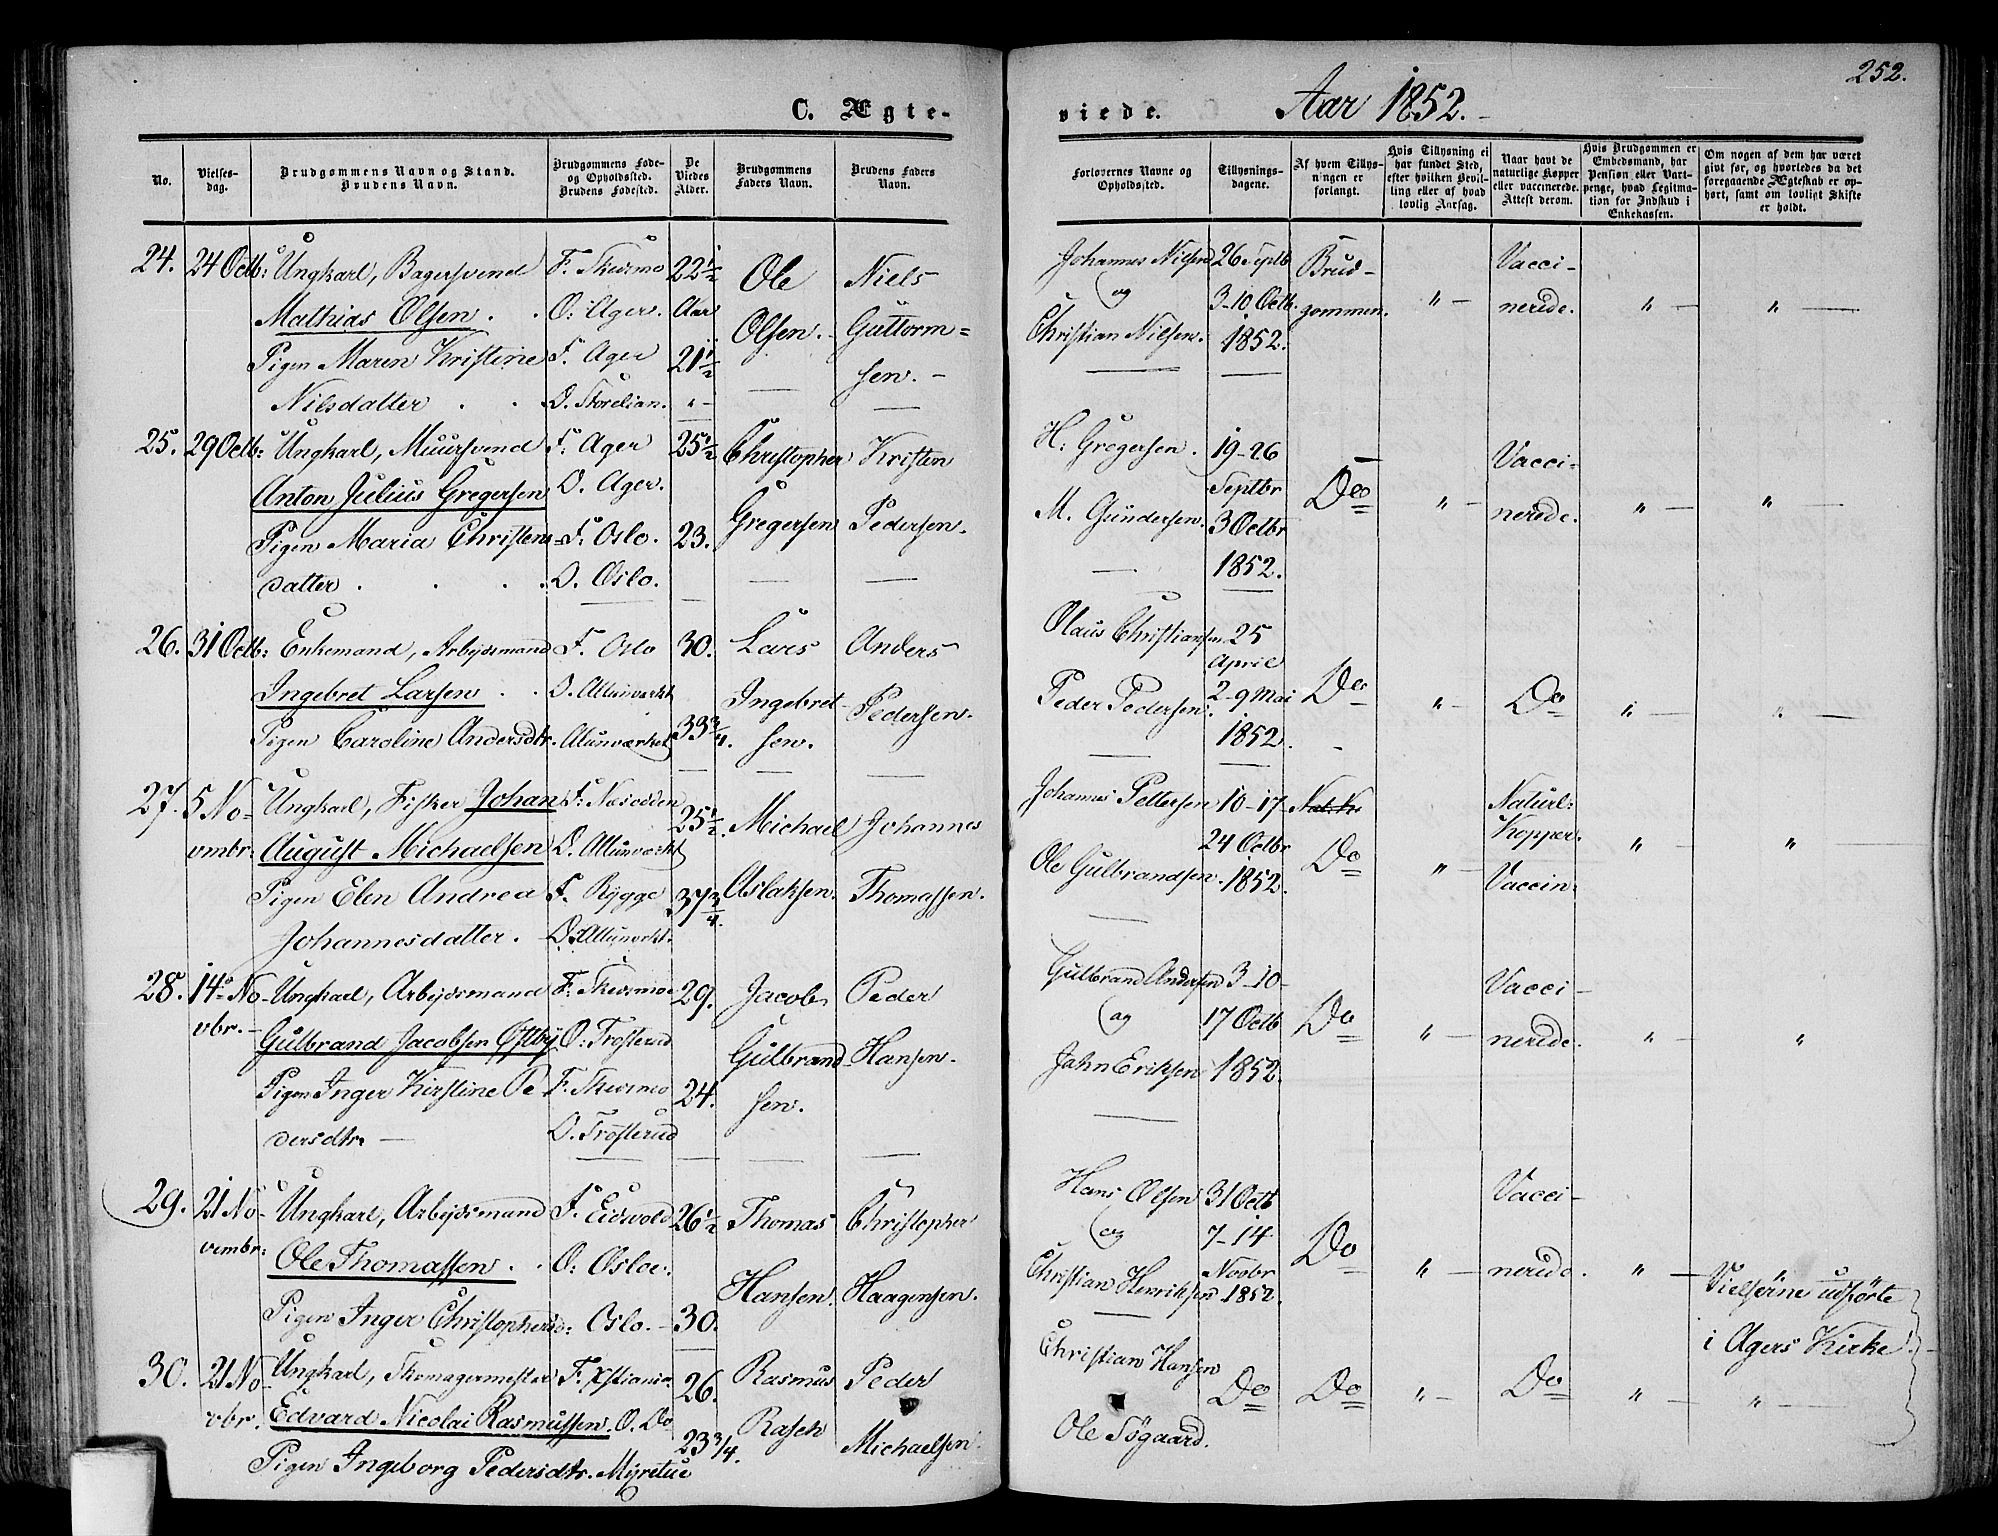 252.
C. Ægte-
viede. Aar 1852.
No.
Vielses-
dag.
Brudgommens Navn og Stand.
Brudens Navn.
Brudgommens Føde-
og Opholdssted.
Brudens Fødested.
De
Viedes
Alder.
Brudgommens
Faders Navn.
Brudens Faders
Navn.
Forlovernes Navne og
Opholdssted.
Tillysnings-
dagene.
Af hvem Tillys-
ningen er
forlangt.
Hvis Tillysning ei
har fundet Sted,
efter hvilken Bevil-
ling eller af hvad
lovlig Aarsag.
Naar havt de
naturlige Kopper
eller vaccinerede.
Attest derom.
Hvis Brudgommen er
Embedsmand, har
Pension eller Vart-
penge, hvad Legitima-
tion for Indskud i
Enkekassen.
Om nogen af dem har været
givt før, og hvorledes da det
foregaaende Ægteskab er op-
hørt, samt om lovligt Skifte
er holdt.
24. 24 Octb: Ungkarl, Bagersvend F. Skedsmo 22½ Ole Niels
Mathias Olsen . . O: Ager. Aar Olsen. Guttorm=
Pigen Maren Kristine F. Ager 21½ sen.
Nilsdatter . . O. Skorelian. " -
Johannes Nilsen 26 Septb Brud- Vacci-
og 3-10 Octb. gommen. " nerede. " "
Christian Nielsen. 1852.
25. 29 Octb: Ungkarl, Muursvend F. Ager 25½ Christopher Kristen
Anton Julius Gregersen O. Ager. Gregersen Pedersen.
Pigen Maria Christens- F. Oslo. 23.
datter . . . O. Oslo.
H: Gregersen. 19-26 Vacci-
Septbr Do " nerede. " "
M. Gundersen. 3 Octbr
1852.
26. 31 Octb: Enkemand, Arbejdsmand F. Oslo 30. Lars Anders
Ingebret Larsen . . O. Allunværkt Ingebret- Pedersen.
Pigen Caroline Andersdtr. Alunværket 33¾. sen.
Olaus Christiansen 25
April
Peder Pedersen. 2-9 Mai Do " Do " "
1852.
27. 5 No- Ungkarl, Fisker Johan F: Nesodden 25½. Michael Johannes
vmbr: August Michaelsen O. Allunværkt
Pigen Elen Andrea F. Rygge 37¾. Aslaksen. Thomassen.
Johannesdatter. O. Allunværkt.
Johannes Pettersen 10-17- Naturl:
24 Octbr Do " Kopper. " "
Ole Gulbrandsen. 1852. Vaccin:
28. 14 No- Ungkarl, Arbejdsmand F. Skedsmoe 29. Jacob Peder
vbr. Gulbrand Jacobsen Østby O: Trosterud Gulbrand- Hansen.
Pigen Inger Kirstine Pe- F. Skedsmo 24. sen.
dersdtr. O. Trosterud
Gulbrand Andersen 3-10- Vacci-
og 17 Octb Do " nerede. " "
John Eriksen 1852.
29. 21 No- Ungkarl, Arbejdsmand F. Eidsvold 26½ Thomas Christopher
vembr: Ole Thomassen . . O: Osloe. Hansen. Haagensen.
Pigen Inger Christophersd: Oslo. 30.
Hans Olsen 31 Octb Vacci-
og 7-14 Do " nerede. " "
Christian Henriksen Novbr
1852.
Vielserne udførte
i Agers Kirke.
30. 21 No- Ungkarl, Skomagermester F. Xstiania 26. Rasmus Peder
vbr. Edvard Nicolai Rasmussen. O. Do Rasch Michaelsen.
Pigen Ingeborg Pedersdtr. Myretue 23¾.
Christian Hansen Do Do " Do " "
Ole Søgaard.